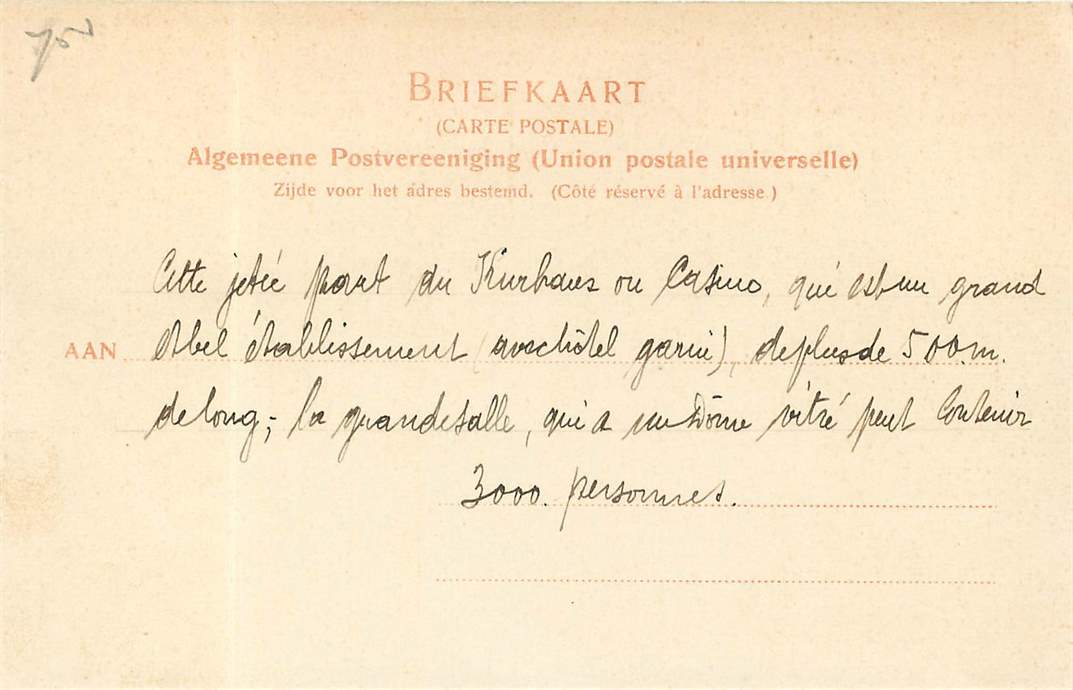 BRIEFKAART
(CARTE POSTALE)
Algemeene Postvereeniging (Union postale universelle)
Zijde voor het adres bestemd. (Côté réservé à l'adresse.)
Cette jetée part du Kurhaus ou Casino, qui est un grand
AAN et bel établissement (avec hôtel garni), de plus de 500 m.
de long; la grande salle, qui a un Dôme vitré peut contenir
3000. personnes.